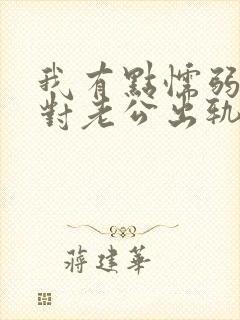 我有點懦弱
對老公出軌
蔣建華